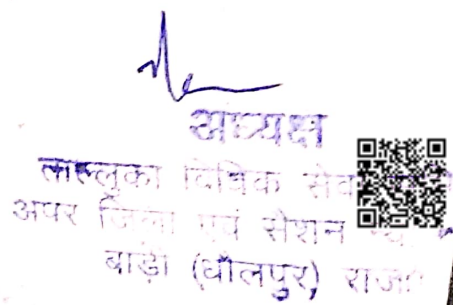 अध्यक्ष
ताल्लुका विधिक सेवा
अपर जिला एवं सेशन
बाड़ी (धौलपुर) राज०